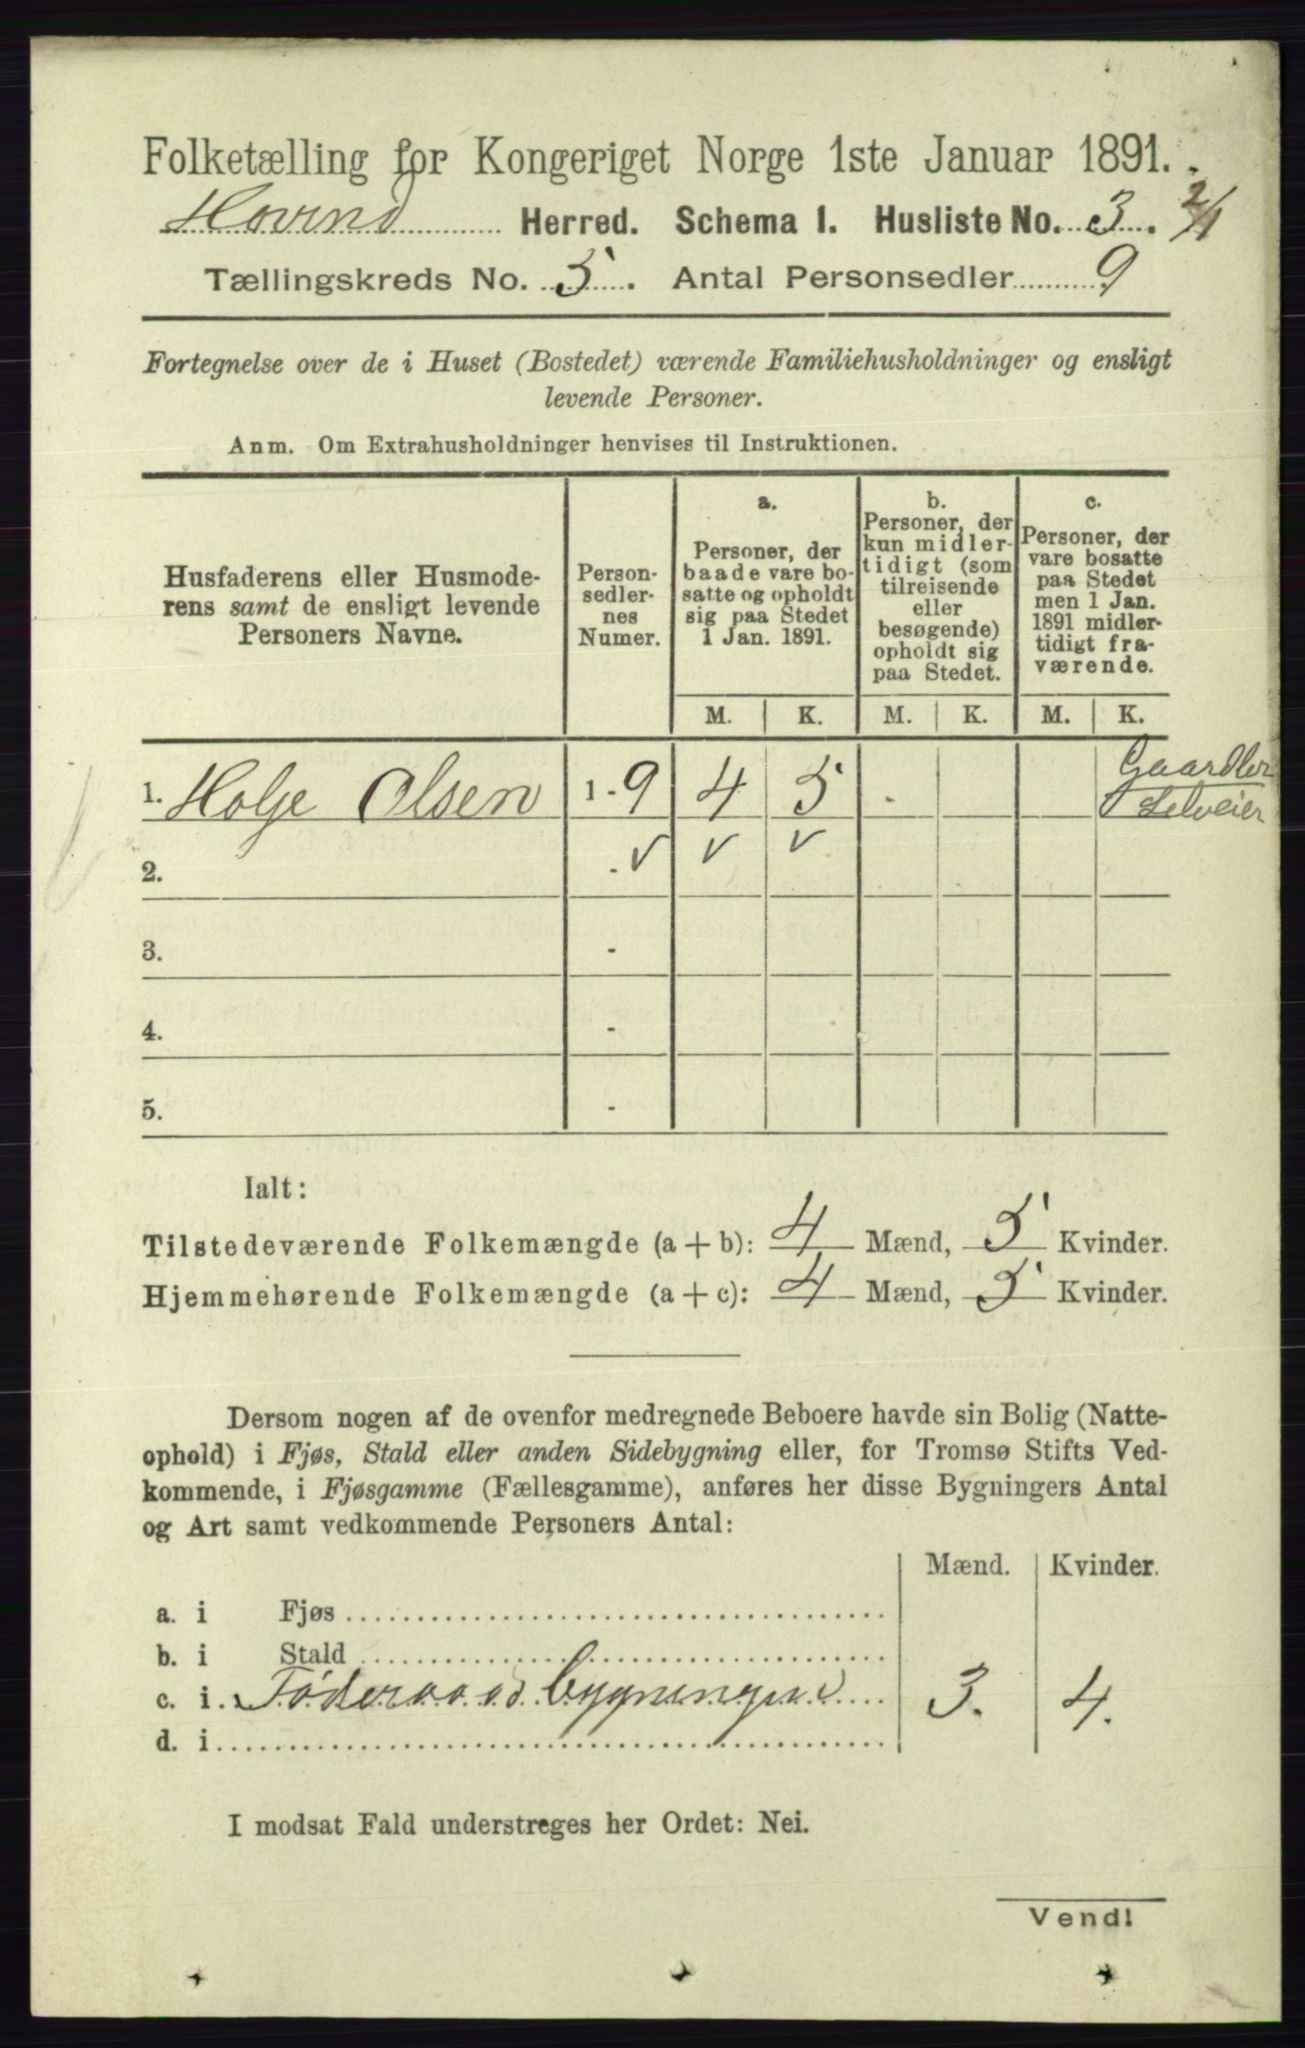 Folketælling for Kongeriget Norge 1ste Januar 1891.
Hovind Herred. Schema I. Husliste No. 3. 2/1
Tællingskreds No. 5. Antal Personsedler 9
Fortegnelse over de i Huset (Bostedet) værende Familiehusholdninger og ensligt
levende Personer.
Anm. Om Extrahusholdninger henvises til Instruktionen.
Husfaderens eller Husmode-
rens samt de ensligt levende
Personers Navne.
Person-
sedler-
nes
Numer.
a.
Personer, der
baade vare bo-
satte og opholdt
sig paa Stedet
1 Jan. 1891.
b.
Personer, der
kun midler-
tidigt (som
tilreisende
eller
besøgende)
opholdt sig
paa Stedet.
c.
Personer, der
vare bosatte
paa Stedet
men 1 Jan.
1891 midler-
tidigt fra-
værende.
M. K. M. K. M. K.
1. Holje Olsen 1 - 9 4 5 Gaardbr
Selveier
2. - v v v
3. -
4. -
5. -
Ialt:
Tilstedeværende Folkemængde (a + b): 4 Mænd, 5 Kvinder.
Hjemmehørende Folkemængde (a + c): 4 Mænd, 5 Kvinder.
Dersom nogen af de ovenfor medregnede Beboere havde sin Bolig (Natte-
ophold) i Fjøs, Stald eller anden Sidebygning eller, for Tromsø Stifts Ved-
kommende, i Fjøsgamme (Fællesgamme), anføres her disse Bygningers Antal
og Art samt vedkommende Personers Antal:
Mænd. Kvinder.
a. i Fjøs
b. i Stald
c. i Föderaadbygningen 3. 4.
d. i
I modsat Fald understreges her Ordet: Nei.
Vend!